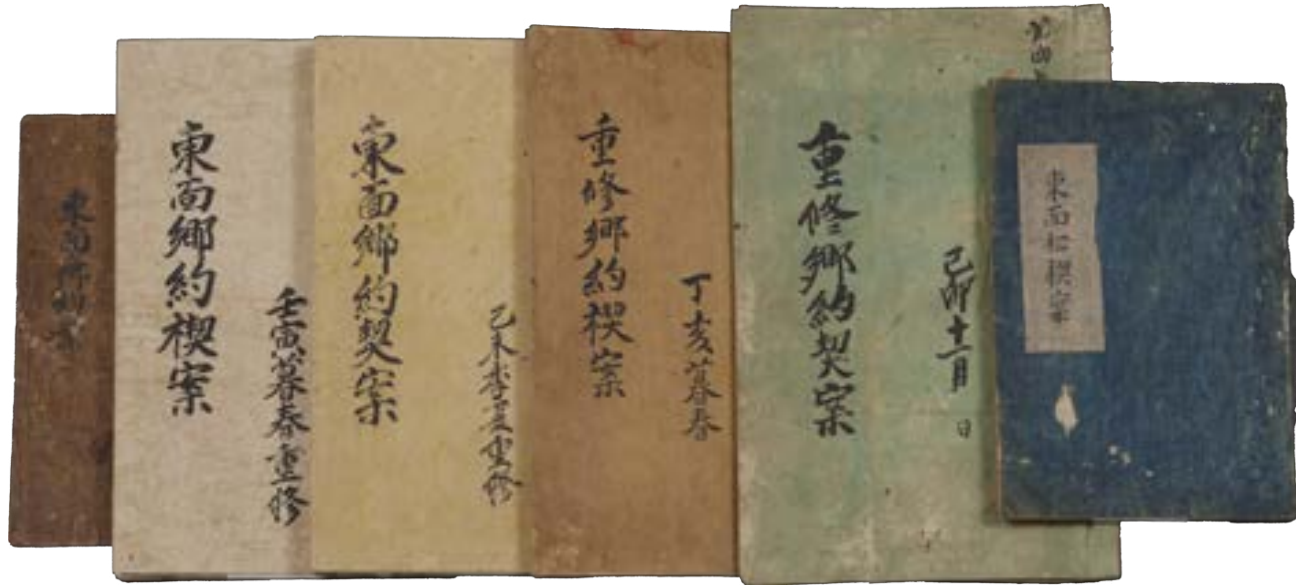 東面鄕約案
東面鄕約禊案
壬寅暮春重修
東面鄕約契案
乙未季夏重修
重修鄕約禊案
丁亥暮春
重修鄕約契案
己卯十一月 日
東面松禊案